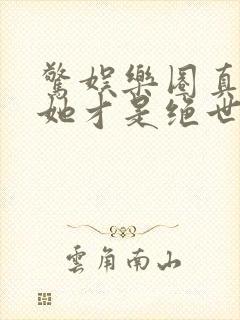 驚娛樂圈真
她才是絕世
雲角南山